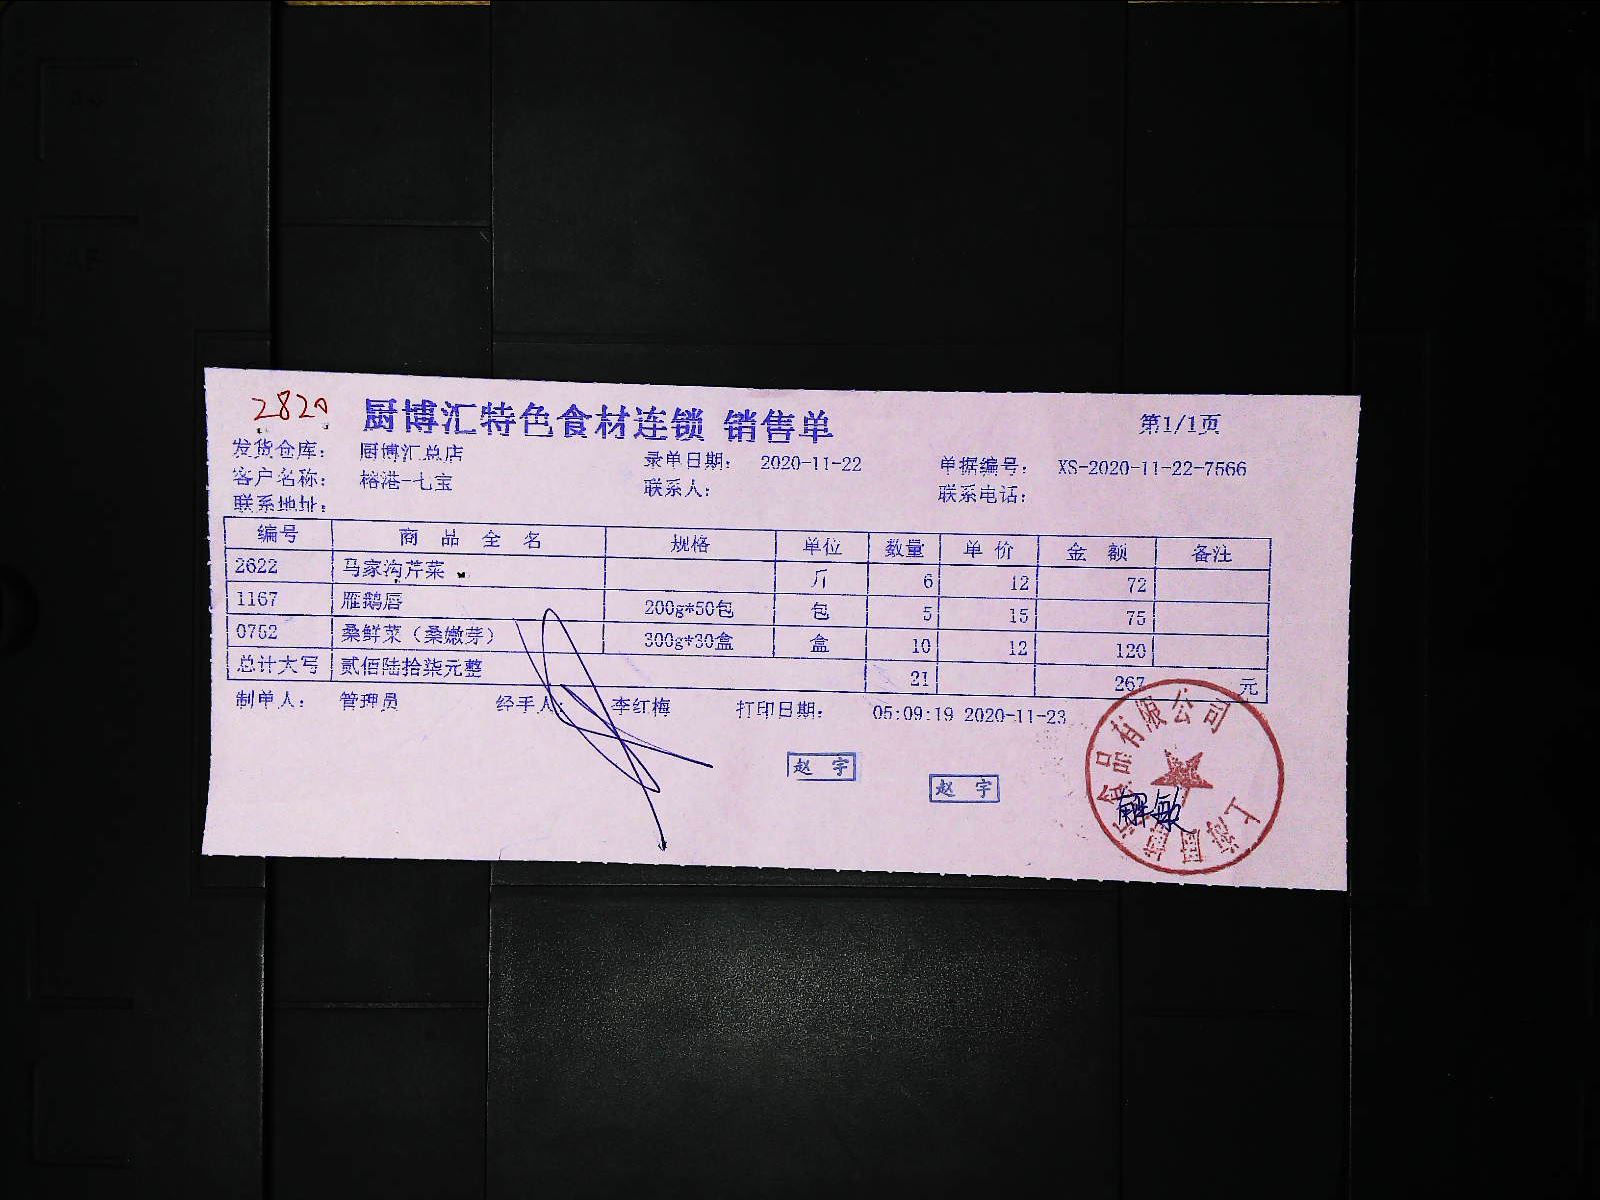 2820
厨博汇特色食材连锁 销售单 第1/1页
发货仓库： 厨博汇总店 录单日期： 2020-11-22 单据编号： XS-2020-11-22-7566
客户名称： 榕港-七宝 联系人： 联系电话：
联系地址：
编号 商 品 全 名 规格 单位 数量 单 价 金 额 备注
2622 马家沟芹菜 斤 6 12 72
1167 雁鹅唇 200g*50包 包 5 15 75
0752 桑鲜菜（桑嫩芽） 300g*30盒 盒 10 12 120
总计大写 贰佰陆拾柒元整 21 267 元
制单人： 管理员 经手人： 李红梅 打印日期： 05:09:19 2020-11-23
赵 宇
赵 宇
解敏